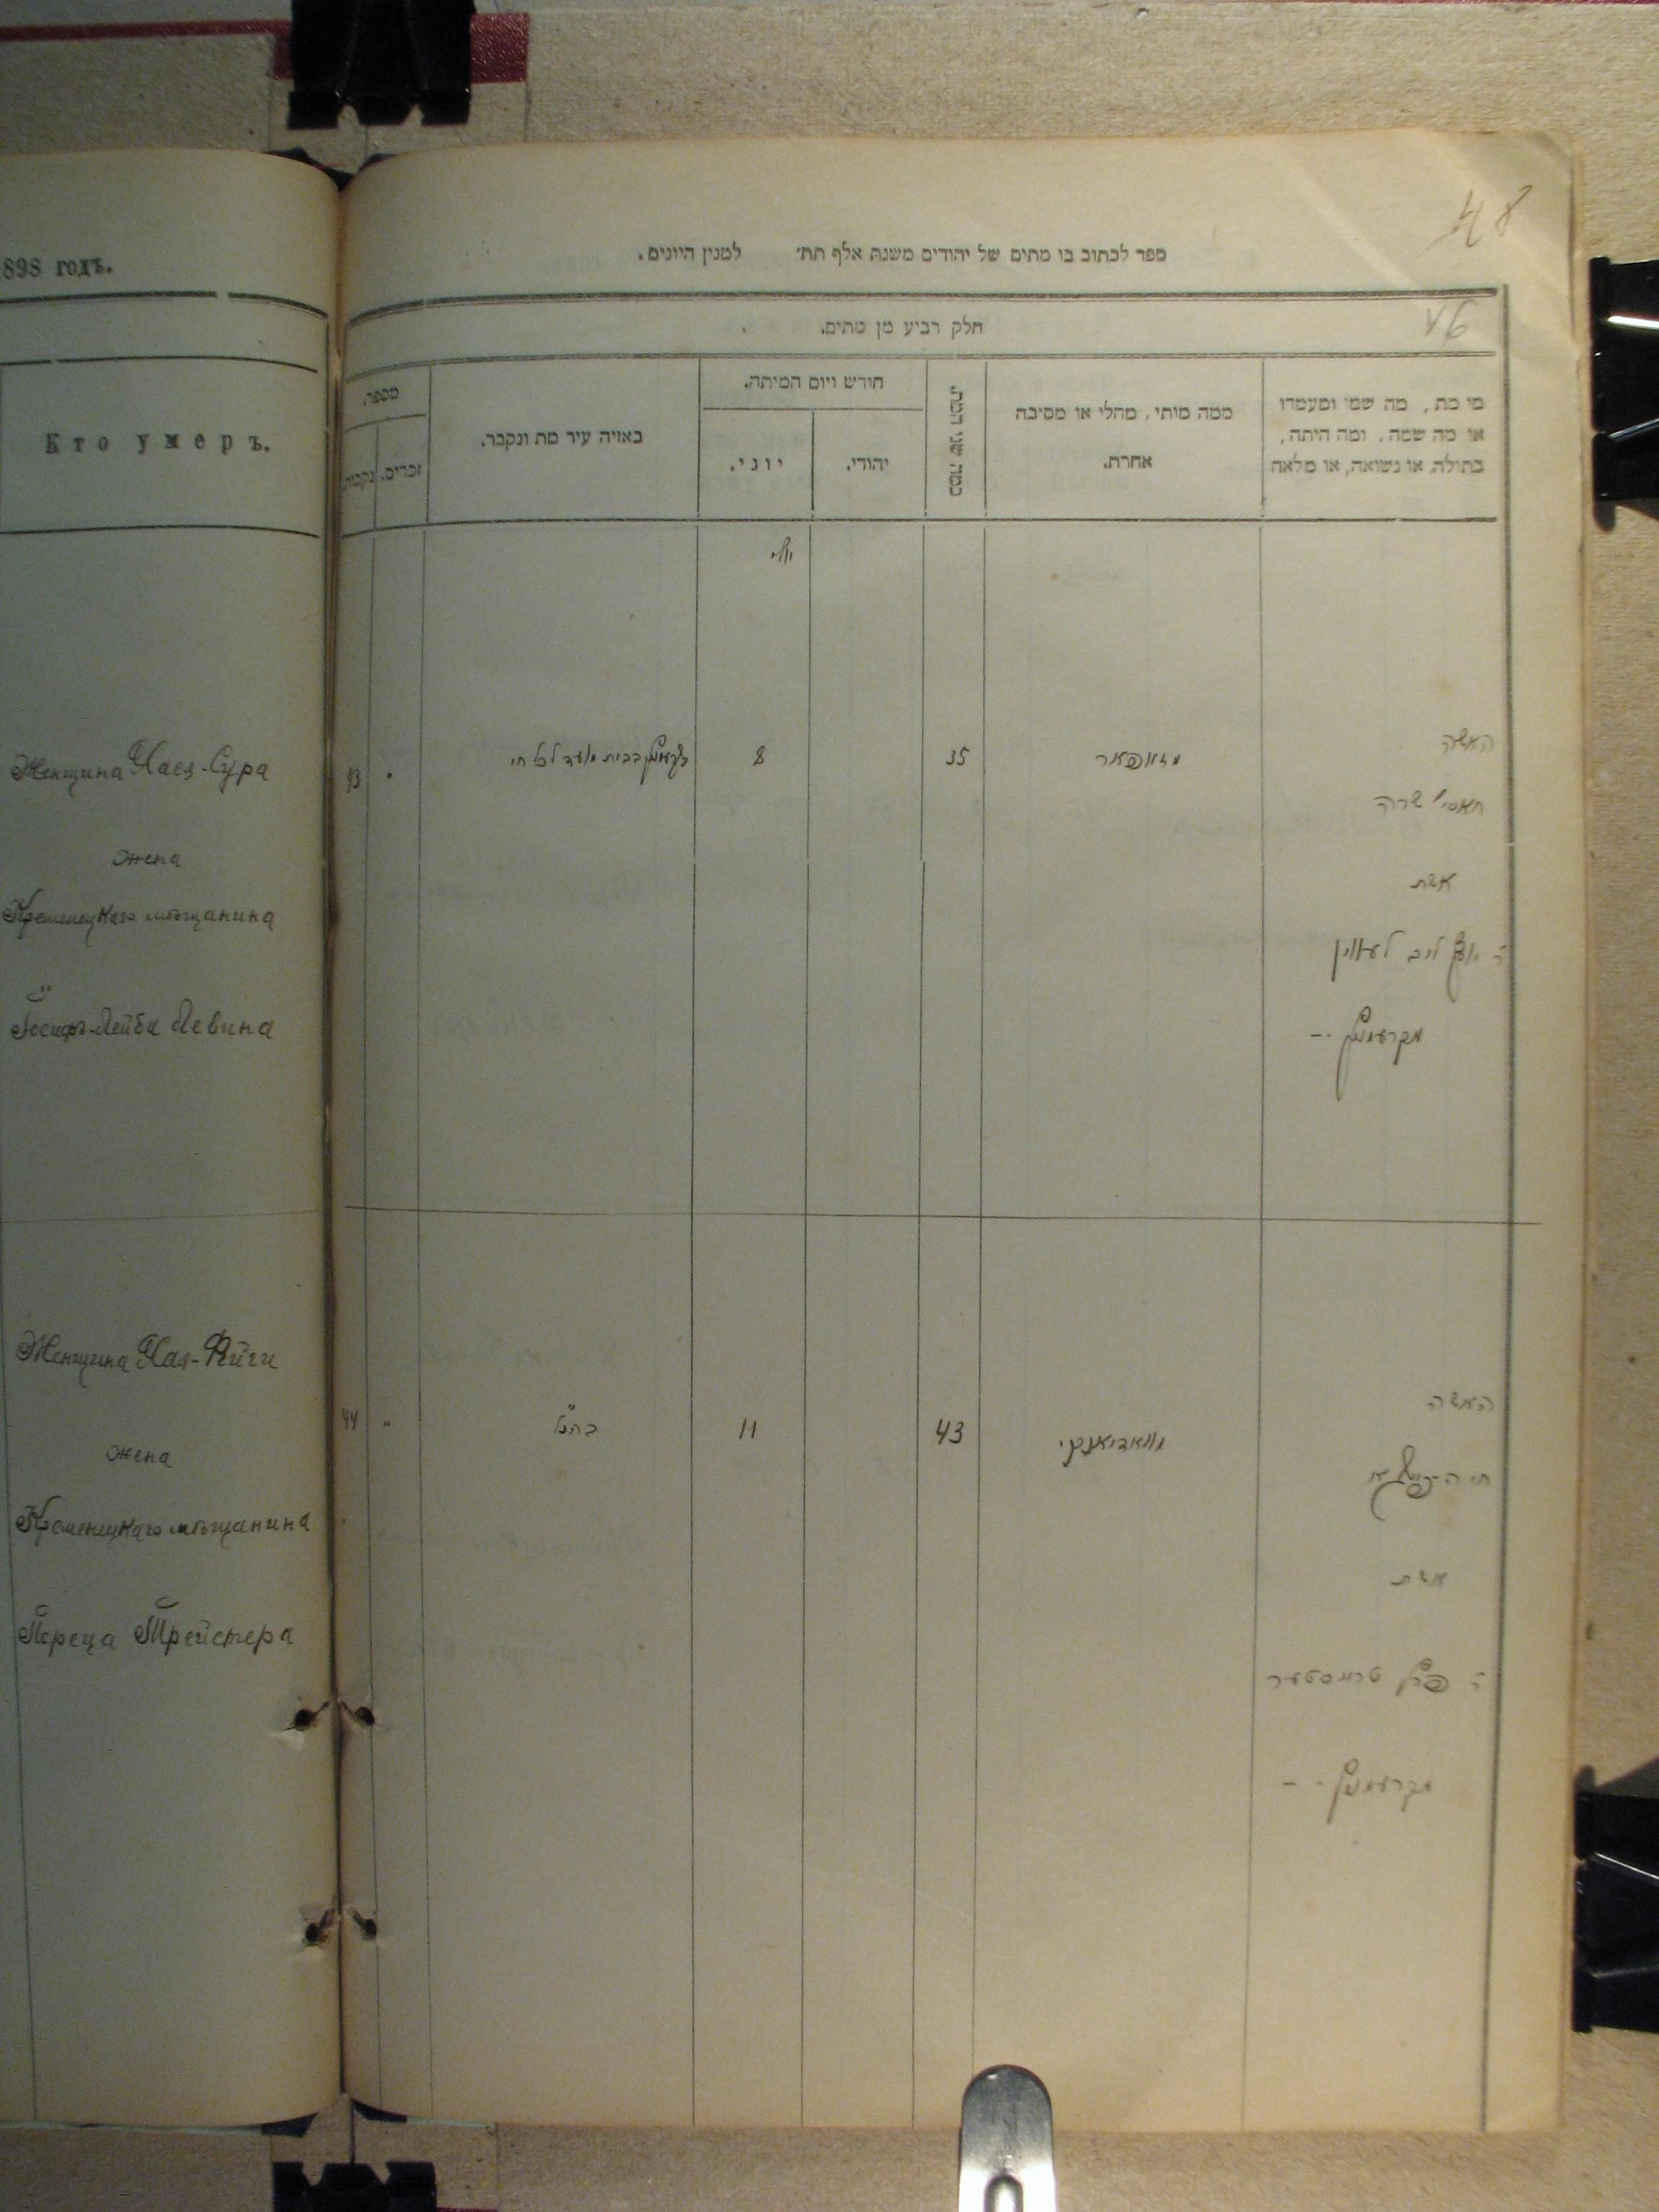 898 годъ.
Кто умеръ.
Женщина Хася-Сура
жена
Кременецкаго мѣщанина
Іосифъ-Лейба Левина
Женщина Хая-Фейги
жена
Кременецкаго мѣщанина
Переца Трейстера
48
ספר לכתוב בו מתים של יהודים משנת אלף תת׳ למנין היונים.
חלק רביע מן מתים.
מי מת, מה שמו ומעמדו
או מה שמה, ומה היתה,
בתולה, או נשואה, או מלאה
ממה מותי, מחלי או מסיבה
אחרת.
כמה שני המת.
חודש ויום המיתה.
יהודי.
יוני.
באזיה עיר מת ונקבר.
מספר.
זכרים.
נקבות
יולי
האשה
35
8
43
חאסי׳ שרה
אשת
ר׳ יוסף ליב לעווין
מקרעמניץ
האשה
43
11
בהנ״ל
44
אשת
ר׳ פרץ טרייסטער
מקרעמניץ